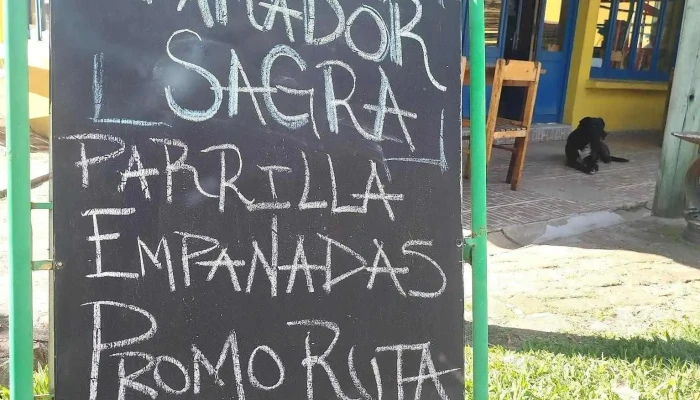 PARADOR
SAGRA
PARRILLA
EMPANADAS
PROMO RUTA